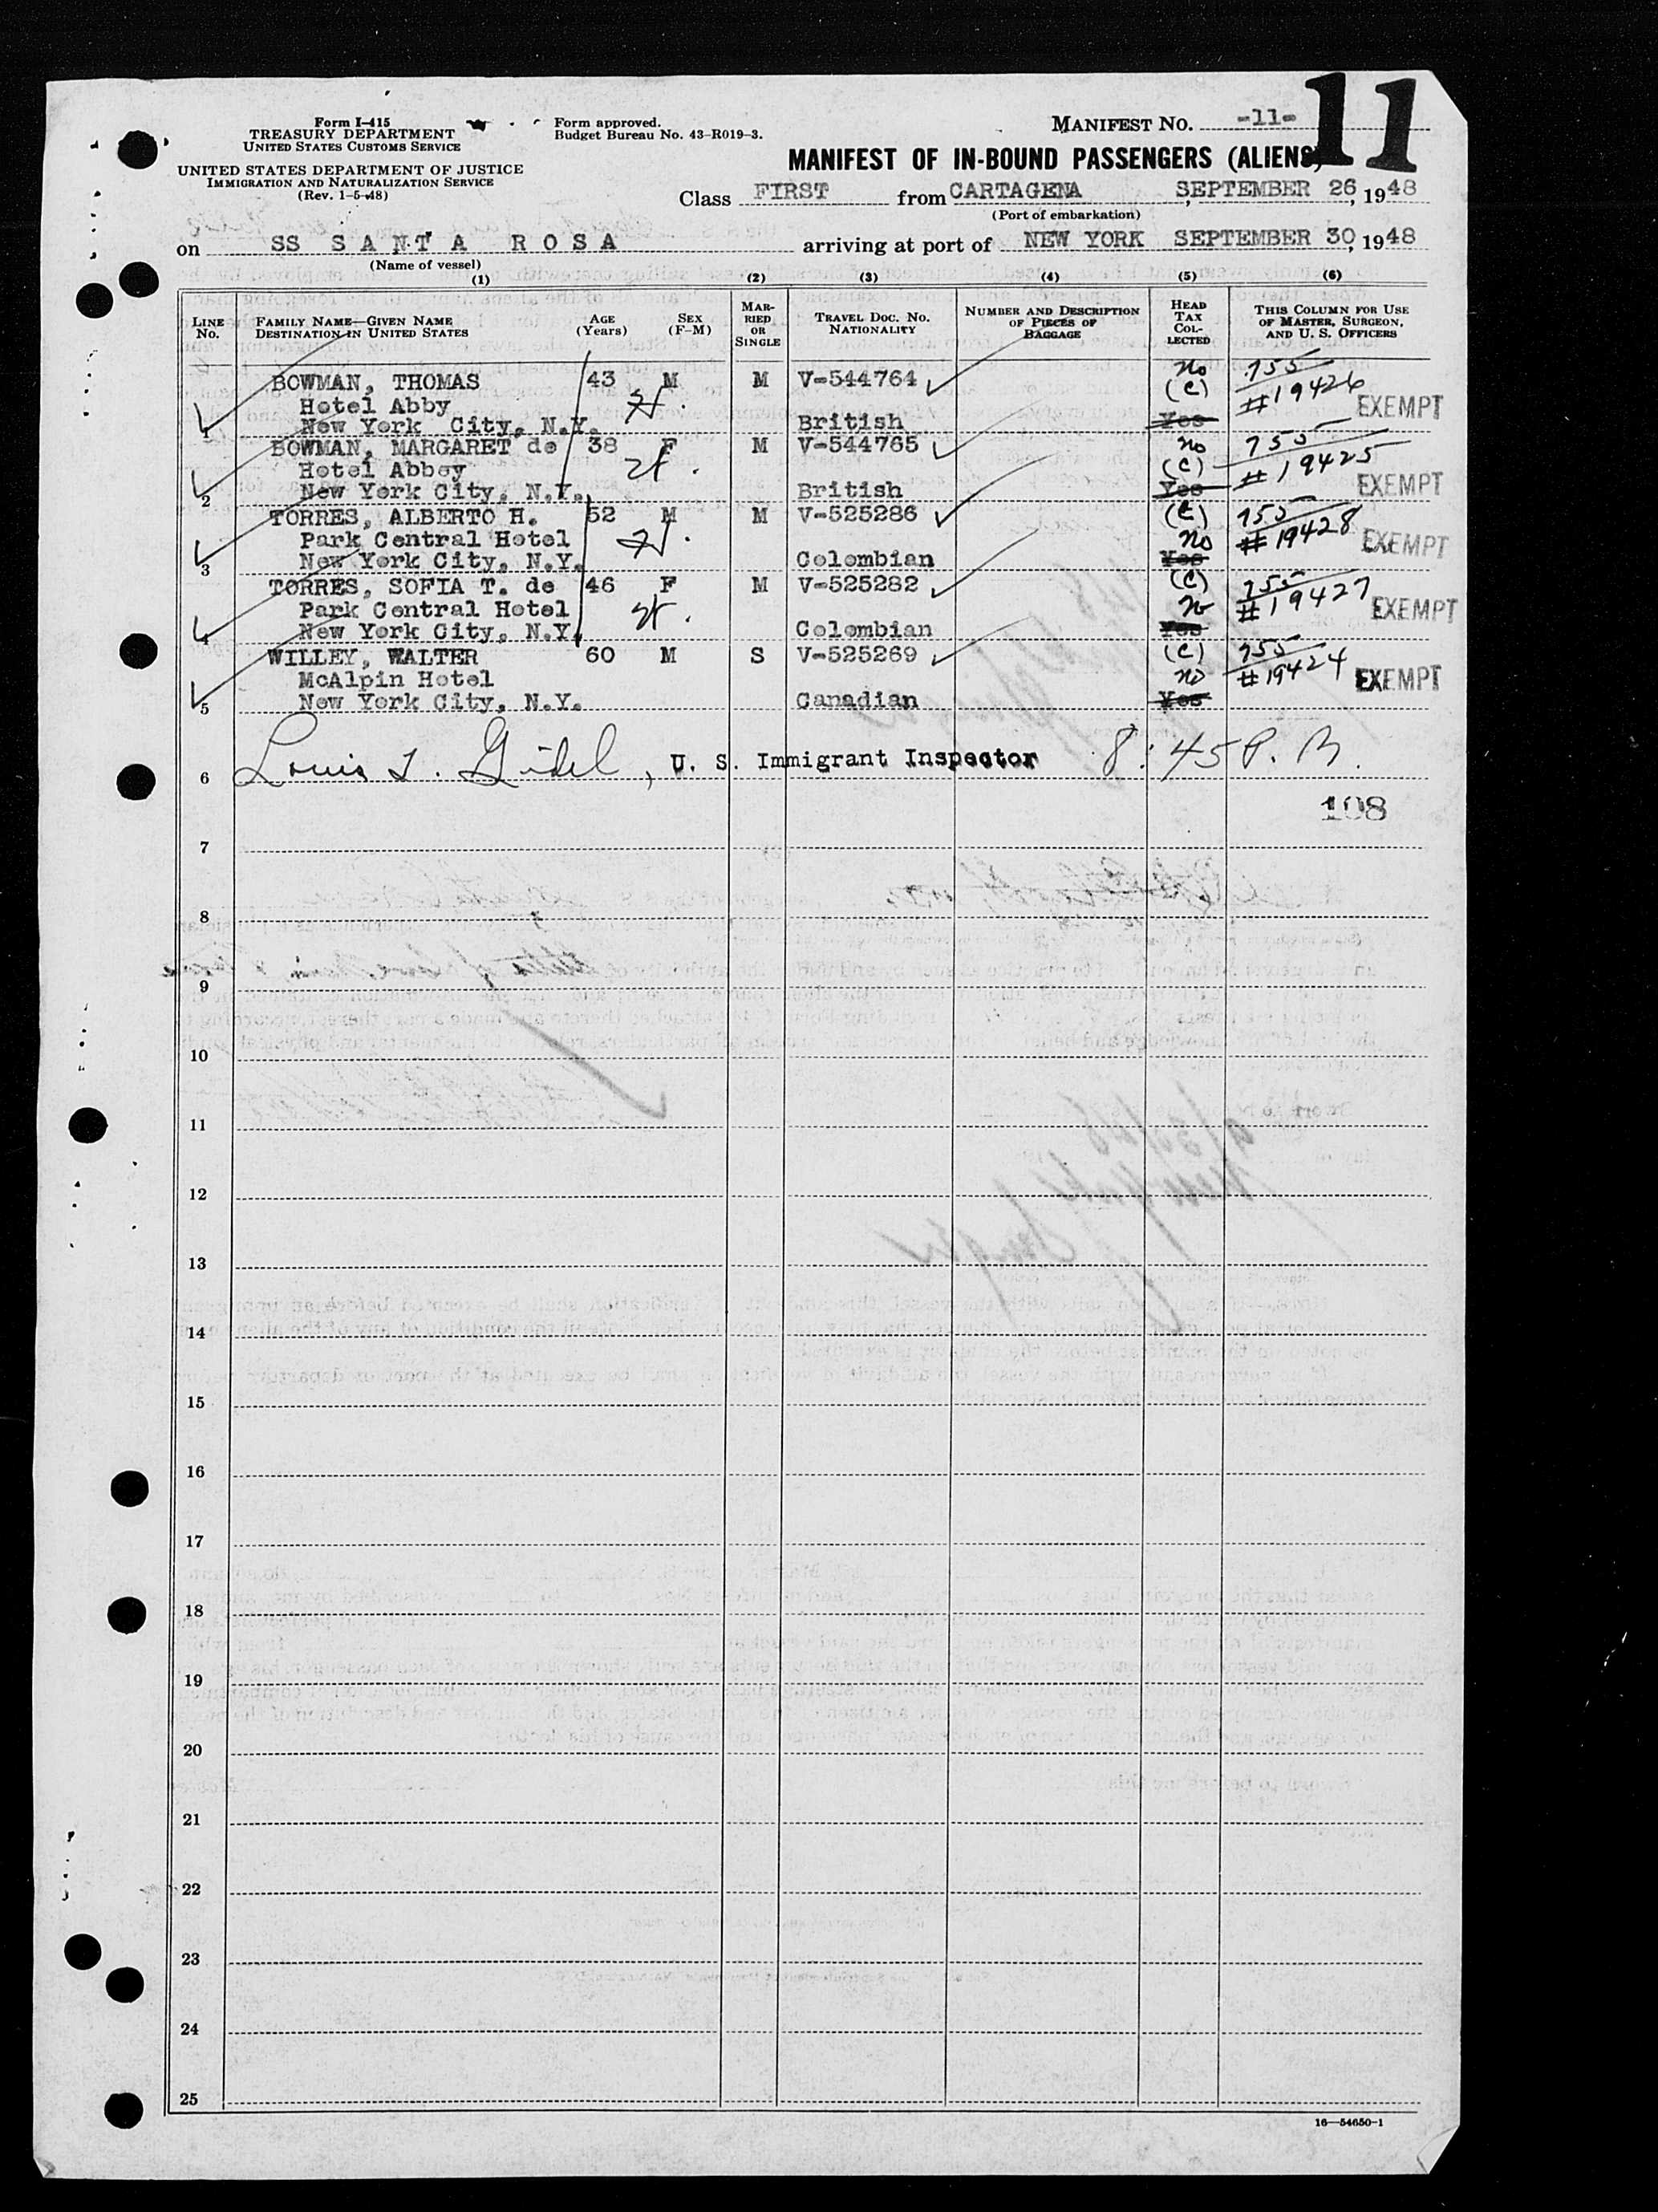 11
Form I-415
TREASURY DEPARTMENT
UNITED STATES CUSTOMS SERVICE
UNITED STATES DEPARTMENT OF JUSTICE
IMMIGRATION AND NATURALIZATION SERVICE
(Rev. 1-5-48)
Form approved.
Budget Bureau No. 43-R019-3.
MANIFEST NO. -11-
MANIFEST OF IN-BOUND PASSENGERS (ALIENS)
Class FIRST from CARTAGENA, SEPTEMBER 26, 1948
(Port of embarkation)
on SS SANTA ROSA arriving at port of NEW YORK SEPTEMBER 30, 1948
(Name of vessel)
(1) (2) (3) (4) (5) (6)
LINE No. FAMILY NAME—GIVEN NAME DESTINATION IN UNITED STATES AGE (Years) SEX (F-M) MARRIED OR SINGLE TRAVEL DOC. NO. NATIONALITY NUMBER AND DESCRIPTION OF PIECES OF BAGGAGE HEAD TAX COLLECTED THIS COLUMN FOR USE OF MASTER, SURGEON, AND U. S. OFFICERS
BOWMAN, THOMAS 43 M M V-544764 no
Hotel Abby (C) #19426 EXEMPT
1 New York City, N.Y. British Yes
BOWMAN, MARGARET de 38 F M V-544765 no
Hotel Abbey (C) #19425
2 New York City, N.Y. British Yes EXEMPT
TORRES, ALBERTO H. 52 M M V-525286 (C)
Park Central Hotel no #19428 EXEMPT
3 New York City, N.Y. Colombian Yes
TORRES, SOFIA T. de 46 F M V-525282 (C)
Park Central Hotel no #19427 EXEMPT
4 New York City, N.Y. Colombian Yes
WILLEY, WALTER 60 M S V-525269 (C)
McAlpin Hotel no #19424 EXEMPT
5 New York City, N.Y. Canadian Yes
6 Louis, U. S. Immigrant Inspector 8:45 P. M.
108
7
8
9
10
11
12
13
14
15
16
17
18
19
20
21
22
23
24
25
16—54650-1